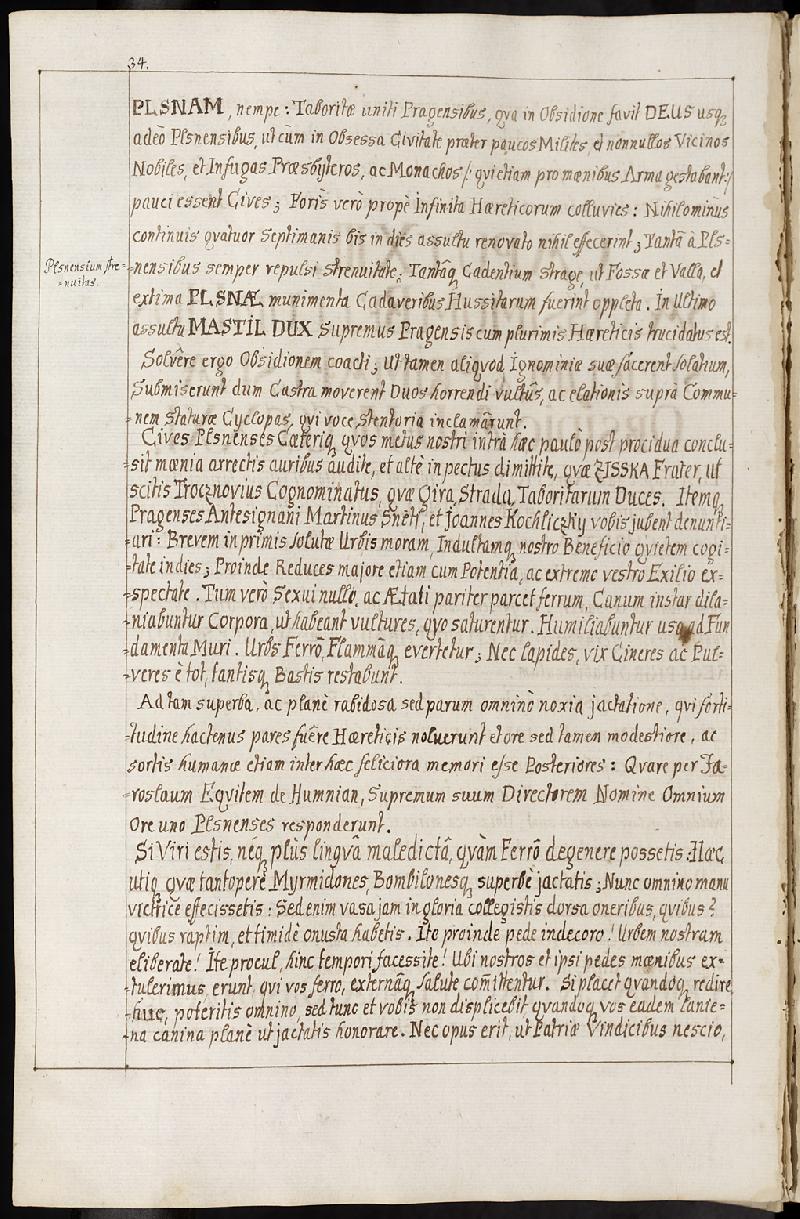 34.
PLSNAM, nempe: Taboritæ uniti Pragensibus, qva in Obsidione favit DEUS usq
adeò Plsnensibus, ut cum in Obsessa Civitate præter paucos Milites et nonnullos Vicinos
Nobiles, et Infugas Præsbÿteros, ac Monachos /: qvi etiam pro mænibus Arma gestabant :/
pauci essent Cives; Foris verò propè Infinita Hæreticorum colluvies: Nihilominùs
continuis qvatuor Septimanis bis in dies assultu renovato nihil effecerint; Tantâ à Pls=
Plsnensium stre=
=nuitas.
=nensibus semper repulsi strenuitate; Tantâq Cadentium strage, ut Fossa et Valla, et
extima PLSNÆ munimenta Cadaveribus Hussitarum fuerint oppleta. In Ultimo
assultu MASTIL DUX Supremus Pragensis cum plurimis Hæreticis trucidatus est.
Solvêre ergo Obsidionem coacti; ut tamen aliqvod Ignominiæ suæ facerent solatium,
Submiserunt dum Castra moverent Duos horrendi vultûs, ac elationis suprà Commu=
=nem staturæ Cyclopas, qvi voce stentoria inclamârunt.
Cives Plsnenses Cæteriq, qvos metus nostri intrà hæc paulò post procidua conclu=
=sit mænia arrectis auribus audite, et altè in pectus dimittite, qvæ ZISSKA Frater, ut
scitis Trocznovius Cognominatus, qvæ Gira, Strada, Taboritarum Duces. Itemq
Pragenses Antesignani Martinus Snètt, et Joannes Kochliczky vobis jubent denunti=
=ari: Brevem inprimis solutæ Urbis moram, Indultamq nostro Beneficio qvietem cogi=
=tate indies; Proinde Reduces majore etiam cum Potentia, ac extremo vestro Exilio ex=
=spectate. Tum verò Sexui nullo, ac Ætati pariter parcet ferrum, Canum instar dila=
=niabuntur Corpora, ut habeant vultures, qvo saturentur. Humiliabuntur usq ad Fun
=damenta Muri. Urbs Ferrô, Flammâq evertetur; Nec lapides, vix Cineres ac Pul=
=veres è tot, tantisq Bastis restabunt.
Ad tam superba, ac planè rabidosa sed parum omninò noxia jactatione, qvi forti=
=tudine hactenus pares fuêre Hæreticis noluerunt et ore sed tamen modestiore, ac
sortis humanæ etiam inter hæc feliciora memori esse Posteriores: Qvare per Ja=
=roslaum Eqvitem de Humnian, Supremum suum Directorem Nomine Omnium
Ore uno Plsnenses responderunt.
Si Viri estis, neq plùs linguâ maledictâ, qvàm Ferrô degenere possetis: Hæc
utiq qvæ tantoperè Myrmidones, Bombilonesq superbè jactatis; Nunc omnino manu
victrice effecissetis: Sed enim vasa jam in gloria collegistis dorsa oneribus, qvibus?
qvibus raptim, et timidè onusta habetis. Ite proinde pede indecoro! Urbem nostram
eliberate! Ite procul, hinc tempori facessite! Ubi nostros et ipsi pedes mænibus ex=
=tulerimus, erunt, qvi vos ferro, externâq salute com̄ittentur. Si placet qvandoq redire
huc, poteritis omnino, sed tunc et vobis non displicebit qvandoq vos eadem lanie=
=na canina planè ut jactatis honorare. Nec opus erit, ut Patriæ Vindicibus nescio,